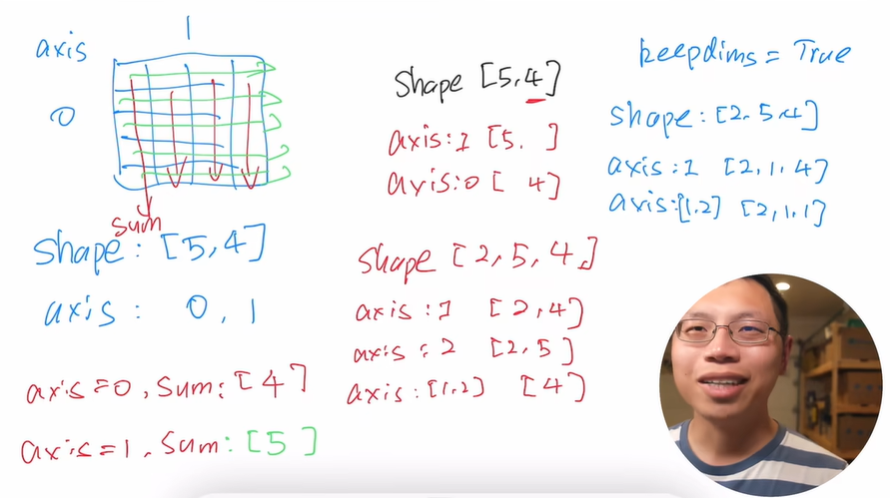 1
axis
0
sum
shape: [5,4]
axis: 0, 1
axis=0, sum: [4]
axis=1, sum: [5 ]
shape [5,4]
axis:1 [5. ]
axis:0 [ 4]
shape [2,5,4,]
axis:1 [2,4]
axis:2 [2,5]
axis:[1,2] [4]
keepdims = True
shape: [2,5,4]
axis:1 [2,1,4]
axis:[1,2] [2,1,1]